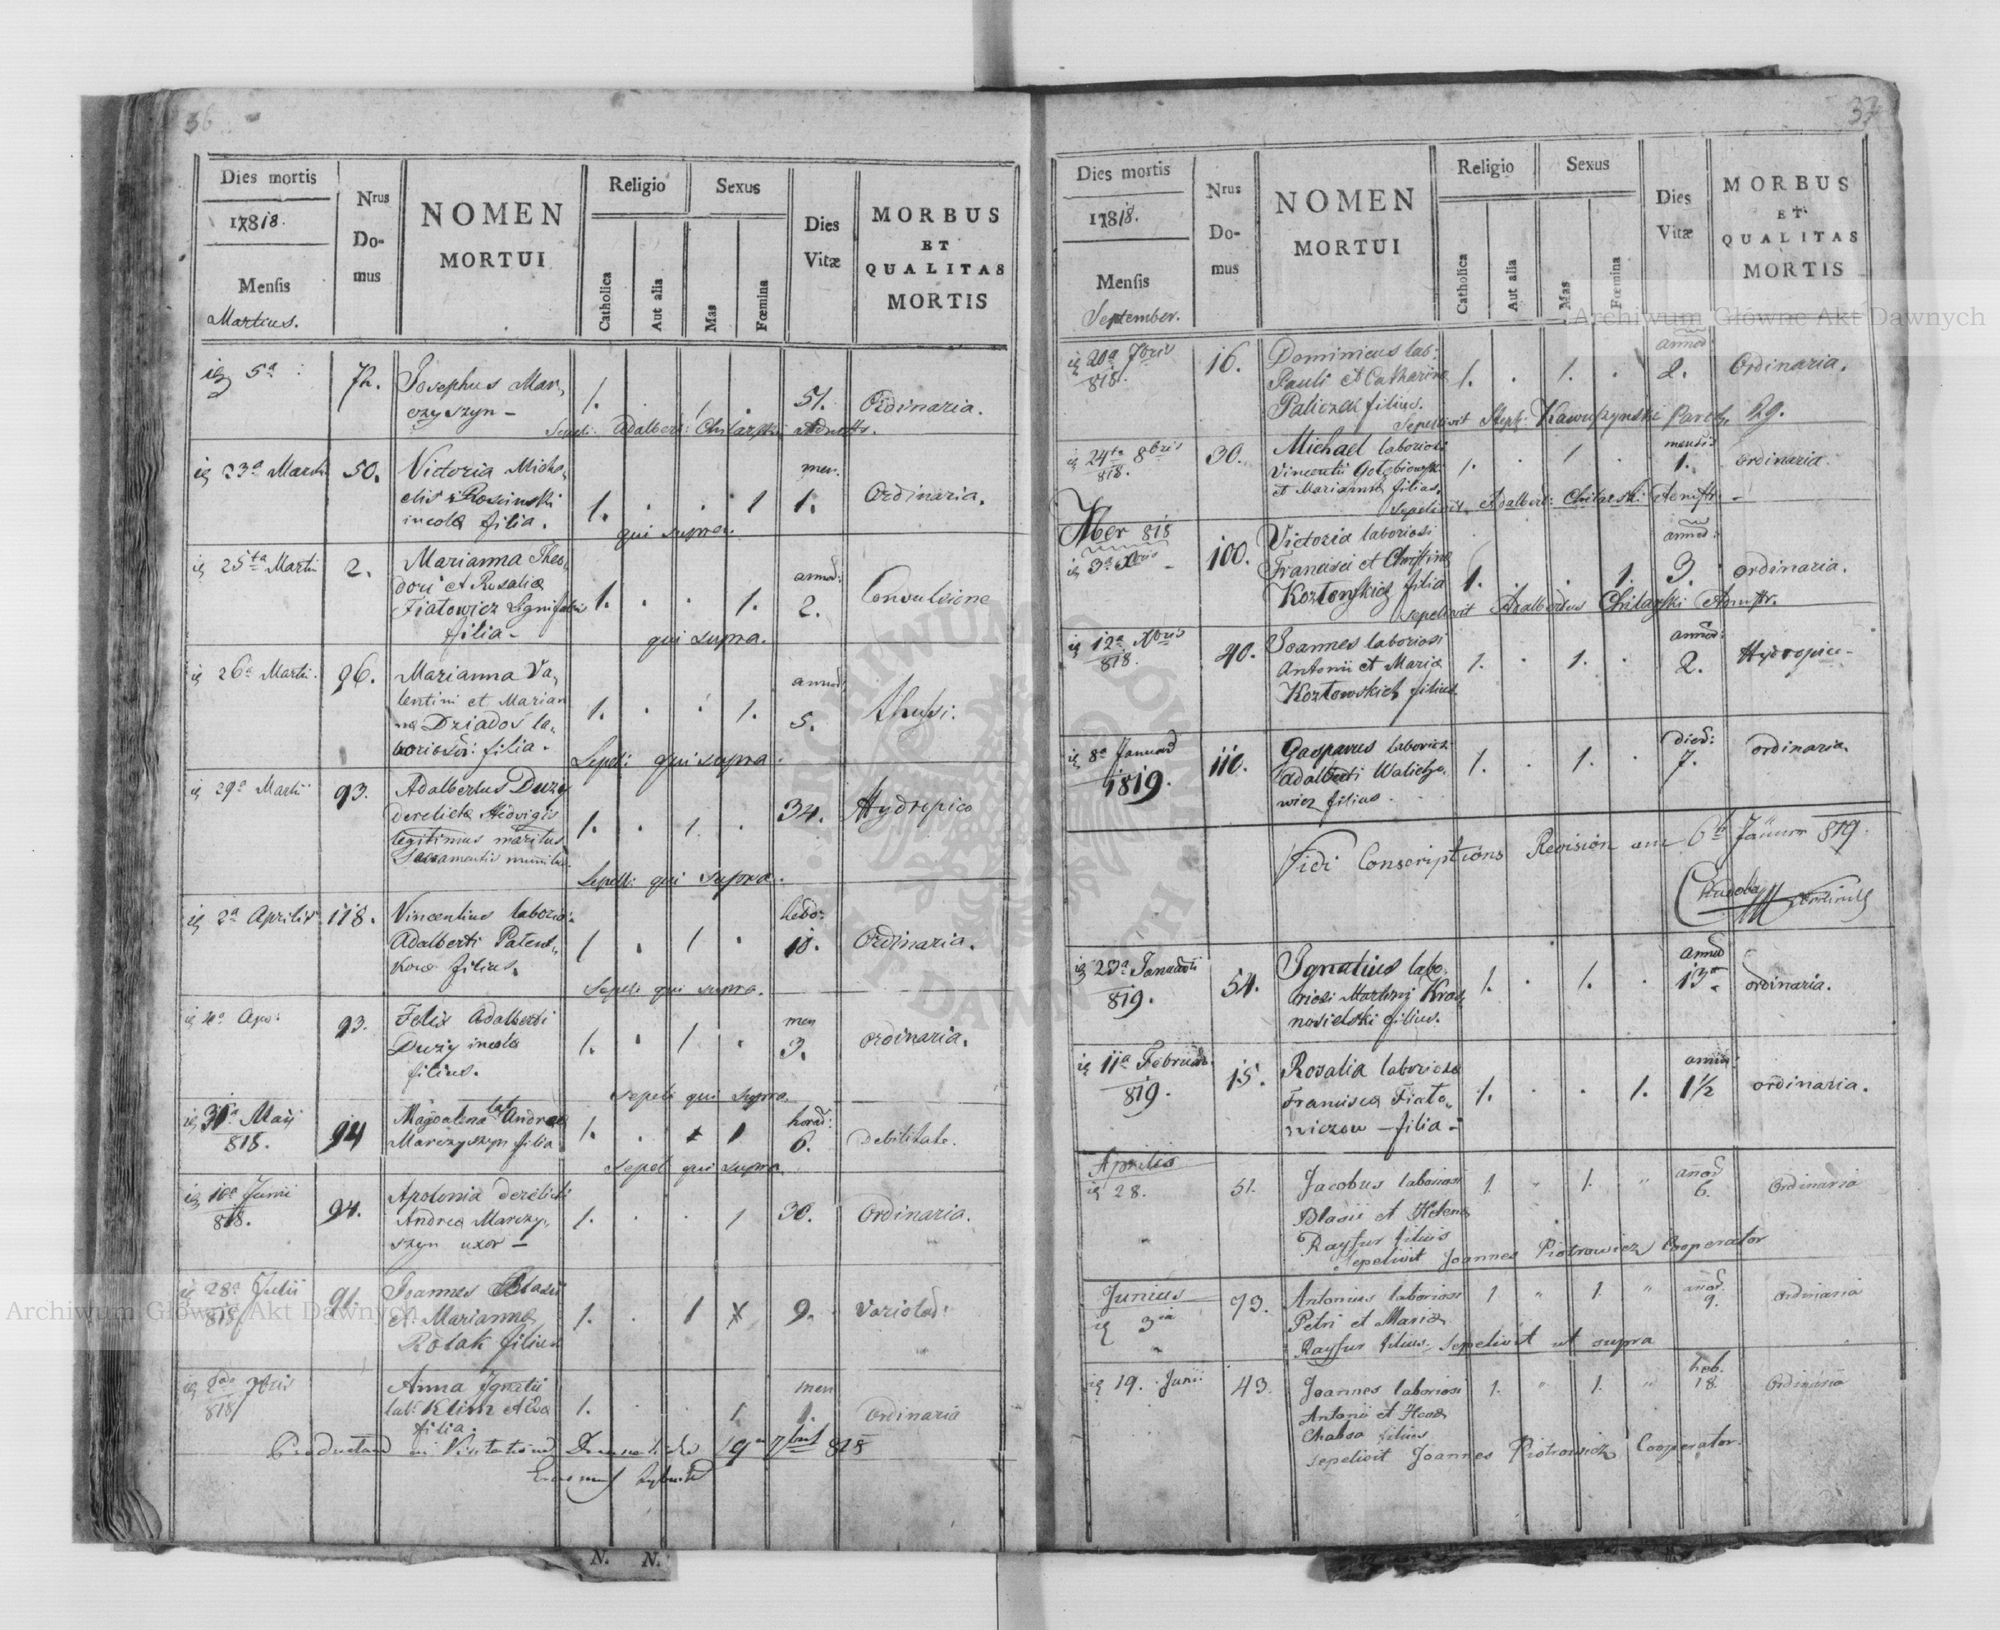 36
Dies mortis
1818.
Mensis
Martius.
Nrus
Do-
mus
NOMEN
MORTUI
Religio
Catholica
Aut alia
Sexus
Mas
Fœmina
Dies
Vitæ
MORBUS
ET
QUALITAS
MORTIS
5ta
Josephus Mar,
czyszyn -
1. . 1 .
51.
Ordinaria.
Sepeli: Adalbert: Chilarski
23a Martii
50.
Victoria Micha,
elis Rosinski
incola filia.
1. . . 1
men.
1.
Ordinaria.
qui supra.
25ta Martii
2.
Marianna Theo,
dori et Rosaliæ
Fiatowicz
filia -
1. . . 1.
annod:
2.
Convulsione
qui supra.
26a Martii.
96.
Marianna Va,
lentini et Marian
næ Dziados la,
filia.
1. . . 1.
5.
Sepeli: qui supra.
29a Martii
93.
Adalbertus Duzy
derelicta Hedvigis
legitimus maritus
Sacramentis munitus.
1. . 1. .
34.
Hydropico
Sepeli: qui supra.
2a Aprilis
118.
Vincentius laborio:
Adalberti
filius.
1 . 1 .
hebo:
18.
Ordinaria.
Sepeli qui supra.
93.
Felix Adalberti
Duzy incola
filius.
1. . 1 .
men
3.
ordinaria.
Sepeli qui supra
31a Maij
818.
94
Magdalena Andreæ
Marczyszyn filia
1. . 1
horad:
6.
debilitate.
Sepel qui supra
10a Junii
818.
94.
Apolonia derelicti
Andreæ Marczy,
szyn uxor -
1. . . 1
30.
Ordinaria.
28a Julii
818
91.
Joannes Blasii
et Mariannæ
Rolak filius
1. . 1
9.
Variolad:
7bris
818
Anna Ignatii
lab: Klim et Eva
filia.
1. . . 1.
men
1.
Ordinaria
7bris 818
N. N.
37
Dies mortis
1818.
Mensis
September.
Nrus
Do-
mus
NOMEN
MORTUI
Religio
Catholica
Aut alia
Sexus
Mas
Fœmina
Dies
Vitæ
MORBUS
ET
QUALITAS
MORTIS
20a 7bris
818.
16.
Dominicus lab:
Pauli et Catharinæ
Paliczak filius.
1. . 1. .
annod:
2.
Ordinaria.
Sepelivit Steph: Kawuszynski Paroch,
24ta 8bris
818.
30.
Michael laboriosi
Vincentii Gołębiowski
et Mariannæ filius.
1. . 1 .
mensis
1.
ordinaria.
Sepelivit Adalbert: Chilarski Admstr. -
Xber 818
3a Xbris
100.
Victoria laboriosi
Francisci et Christinæ
Kozłowskich filia
1. . . 1.
annod:
3.
ordinaria.
sepelivit Adalbertus Chilarski Admstr.
12a Xbris
818.
40.
Joannes laboriosi
Antonii et Mariæ
Kozłowskich filius
1. . 1. .
annod:
2.
Hydropico -
8a Januar
1819.
110.
Gasparus laboriosi
Adalberti Walicho,
wicz filius.
1. . 1. .
died:
7.
ordinaria.
Vidi Conscriptions Revision am 6t Januar 819.
23a Januarii
819.
54.
Ignatius labo,
riosi Martini Kras,
nosielski filius.
1. . 1. .
annod
13
ordinaria.
11a Februar.
819.
15.
Rosalia laboriosa
Francisca Fiato,
wiczow - filia -
1. . . 1.
1½
ordinaria.
Aprilis
28.
51.
Jacobus laboriosi
Blasii et Helenæ
Rayfur filius
1. " 1. "
anod
6.
Ordinaria
Sepelivit Joannes Piotrowicz Cooperator
Junius
3ia
73.
Antonius laboriosi
Petri et Mariæ
Rayfur filius. sepelivit ut supra
1. " 1. "
anod.
9.
ordinaria
19. Junii
43.
Joannes laboriosi
Antonii et
Chabsa filius
1. " 1. "
heb.
18.
Ordinaria
Sepelivit Joannes Piotrowicz Cooperator.
Archiwum Główne Akt Dawnych
Archiwum Główne Akt Dawnych
ARCHIWUM GŁÓWNE AKT DAWNYCH